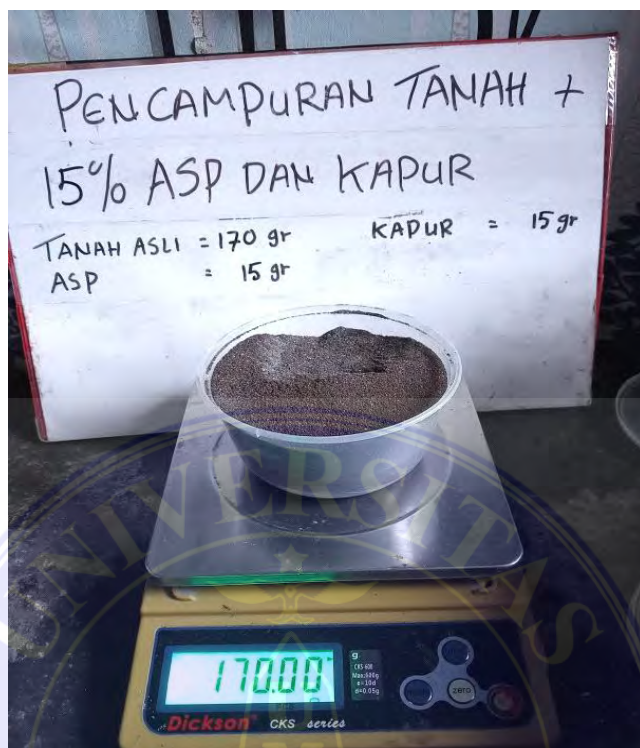 PENCAMPURAN TANAH +
15% ASP DAN KAPUR
TANAH ASLI = 170 gr KAPUR = 15 gr
ASP = 15 gr
UNIVERSITAS
170.00
g
CKS 600
Max:600g
e=10d
d=0.05g
ZERO
Dickson CKS series